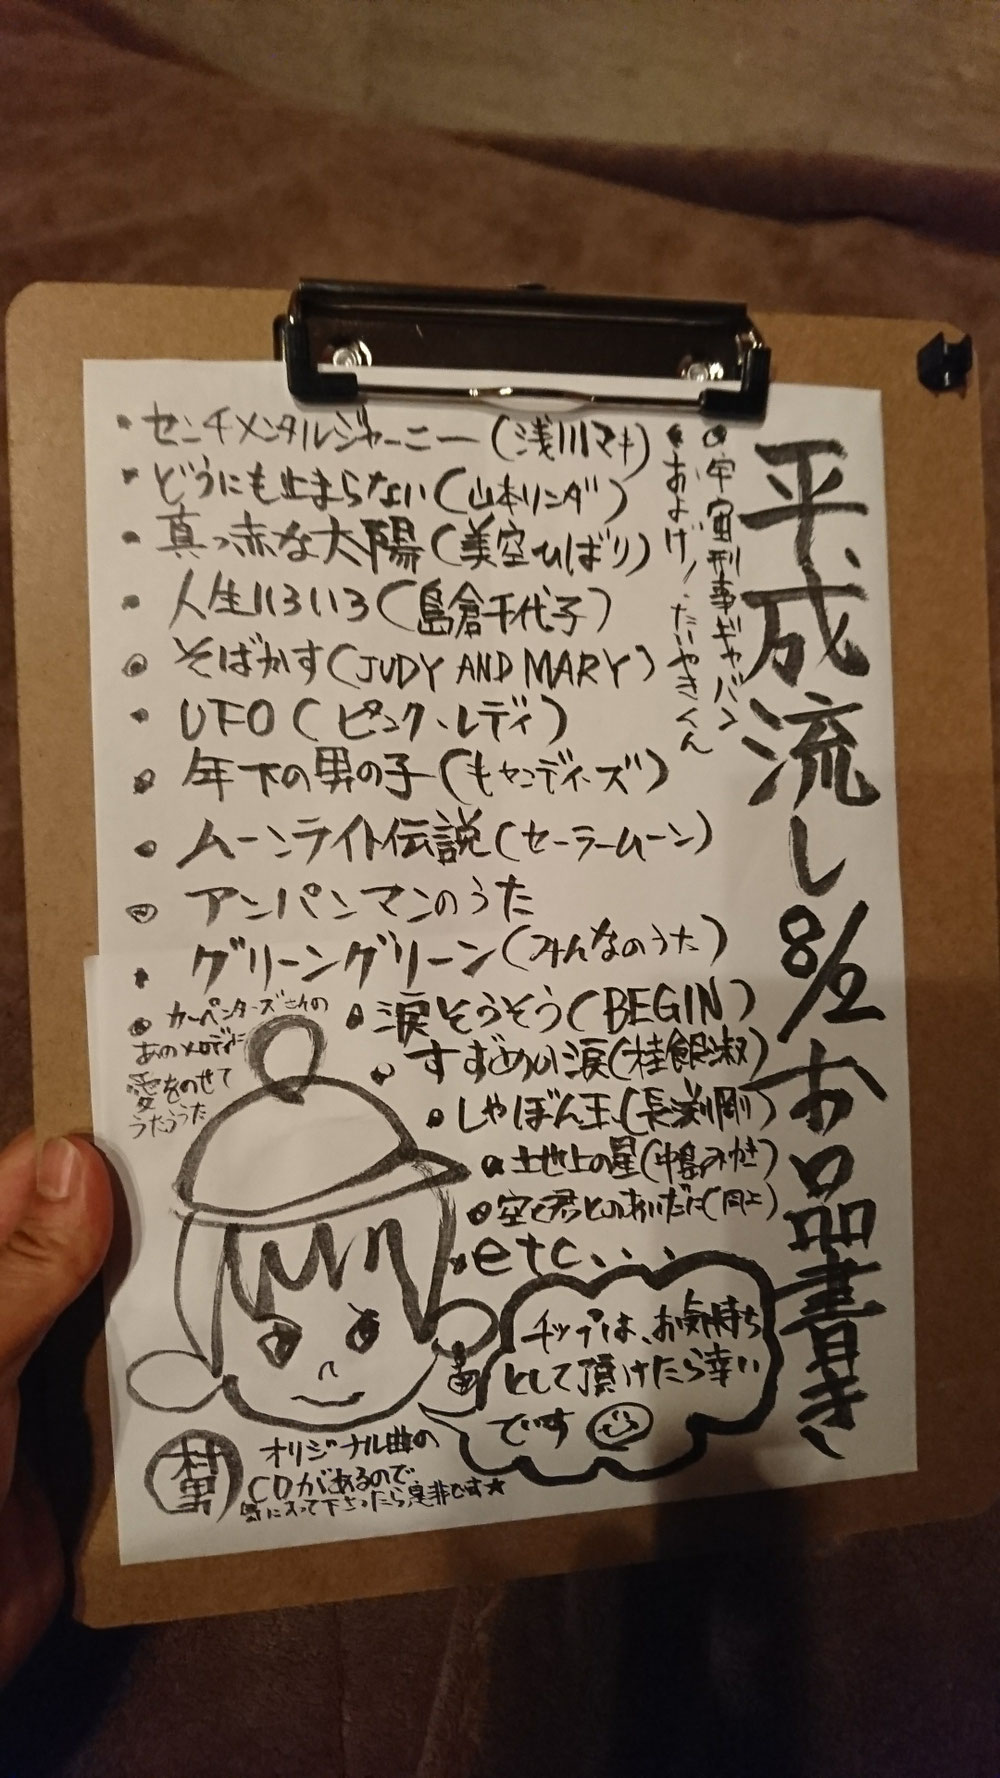 平成流し8/2お品書き
・宇宙刑事ギャバン
・およげ!たいやきくん
・センチメンタルジャーニー(浅川マキ)
・どうにも止まらない(山本リンダ)
・真っ赤な太陽(美空ひばり)
・人生いろいろ(島倉千代子)
・そばかす(JUDY AND MARY)
・UFO(ピンク・レディ)
・年下の男の子(キャンディーズ)
・ムーンライト伝説(セーラームーン)
・アンパンマンのうた
・グリーングリーン(みんなのうた)
・カーペンターズさんの
あのメロディに
愛をのせて
うたううた
・涙そうそう(BEGIN)
・すずめの涙(桂銀淑)
・しゃぼん玉(長渕剛)
・地上の星(中島みゆき)
・空と君とのあいだに(同上)
・etc・・・
チップは、お気持ち
として頂けたら幸い
です
村男
オリジナル曲の
CDがあるので、
気に入って下さったら是非です★